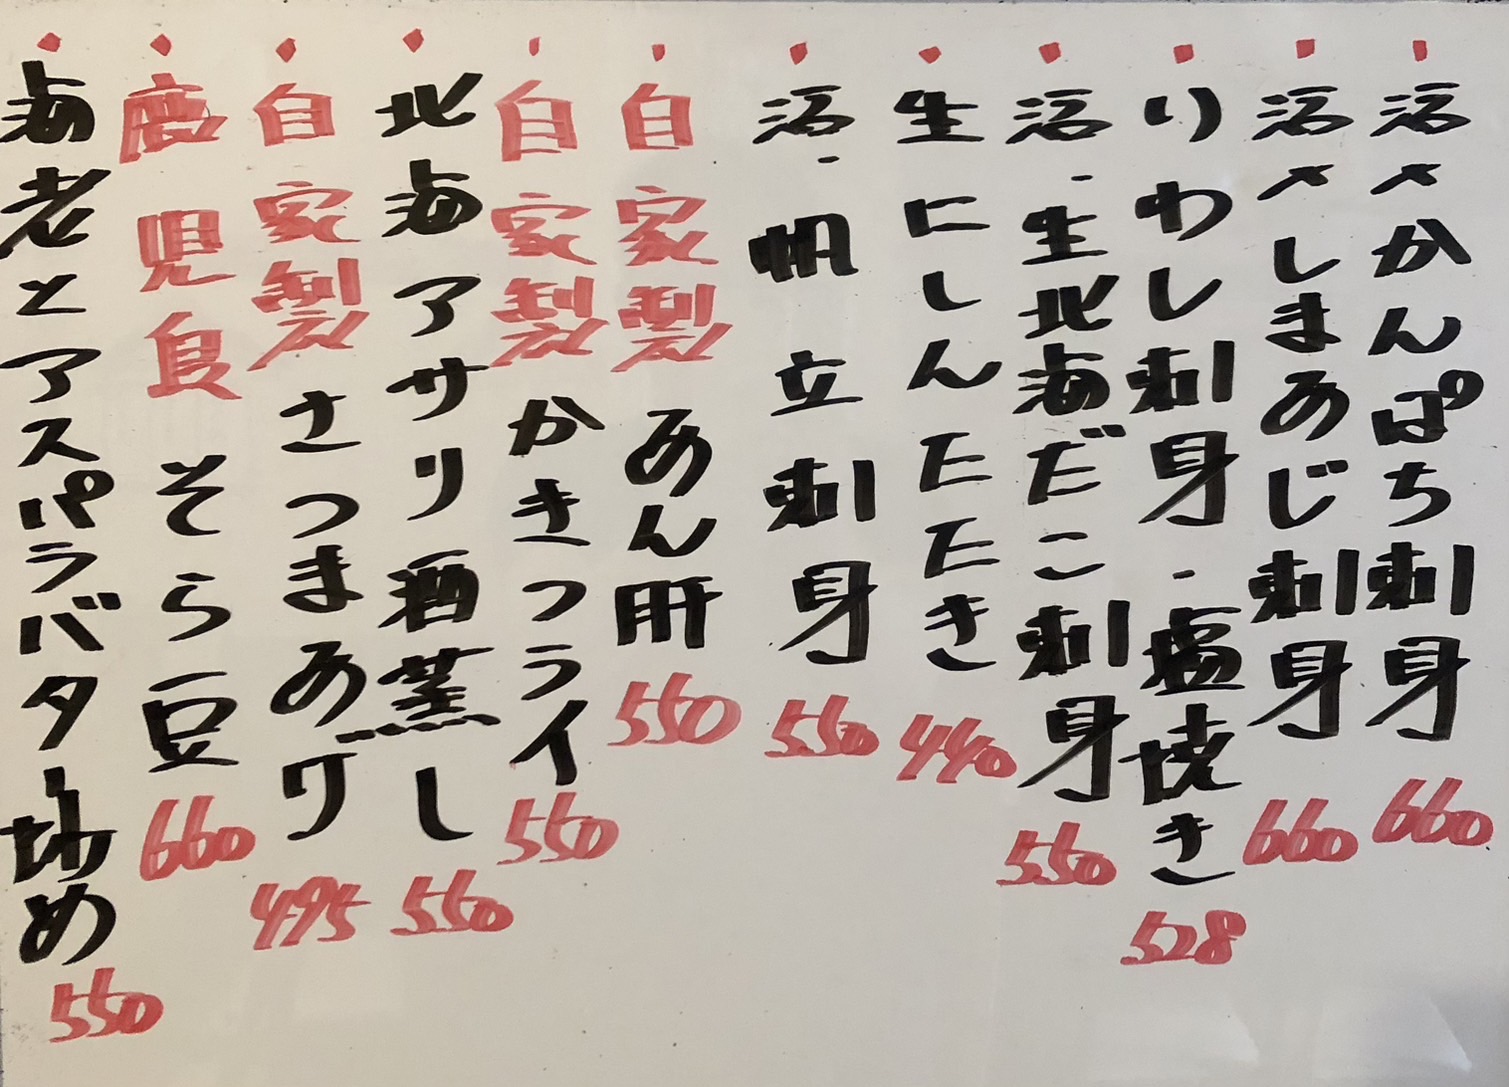 活〆かんぱち刺身 660
活〆しまあじ刺身 660
いわし刺身・塩焼き 528
活・生北海だこ刺身 550
生にしんたたき 440
活・帆立刺身 550
自家製 あん肝 550
自家製 かきフライ 550
北海アサリ酒蒸し 550
自家製 さつまあげ 495
鹿児島 そら豆 660
海老とアスパラバター炒め 550